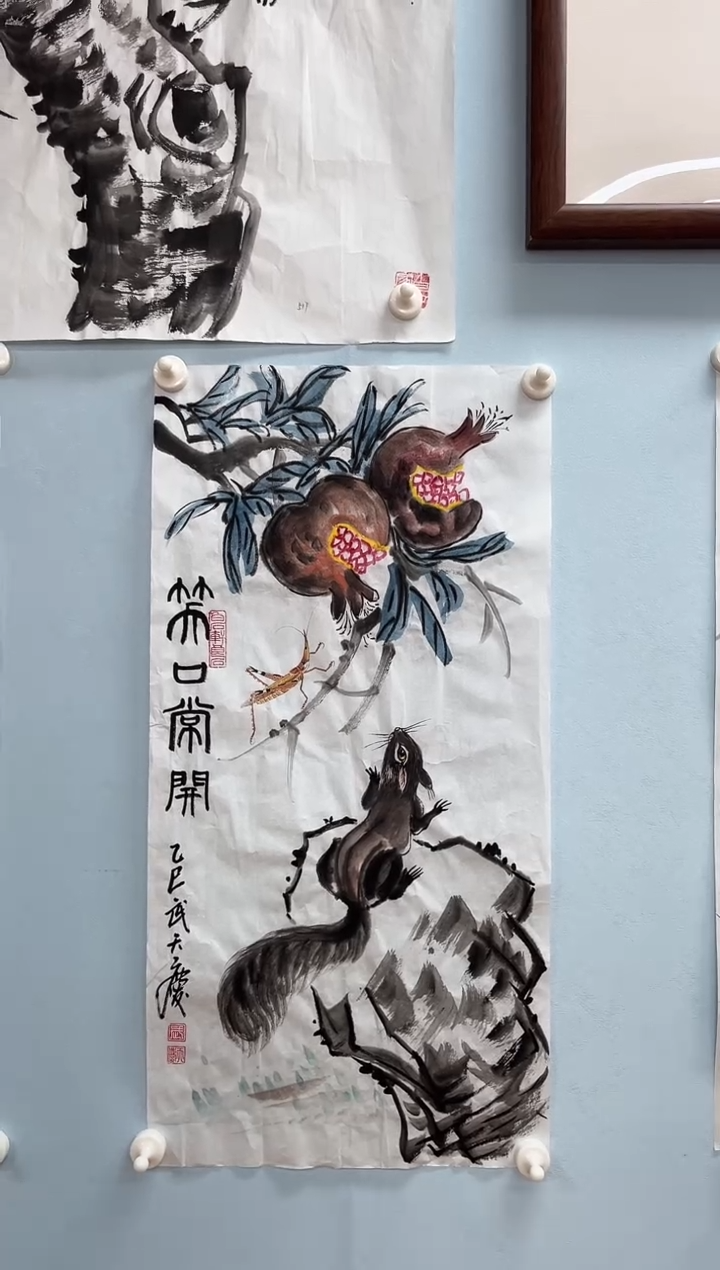 笑口常開
乙巳武天慶